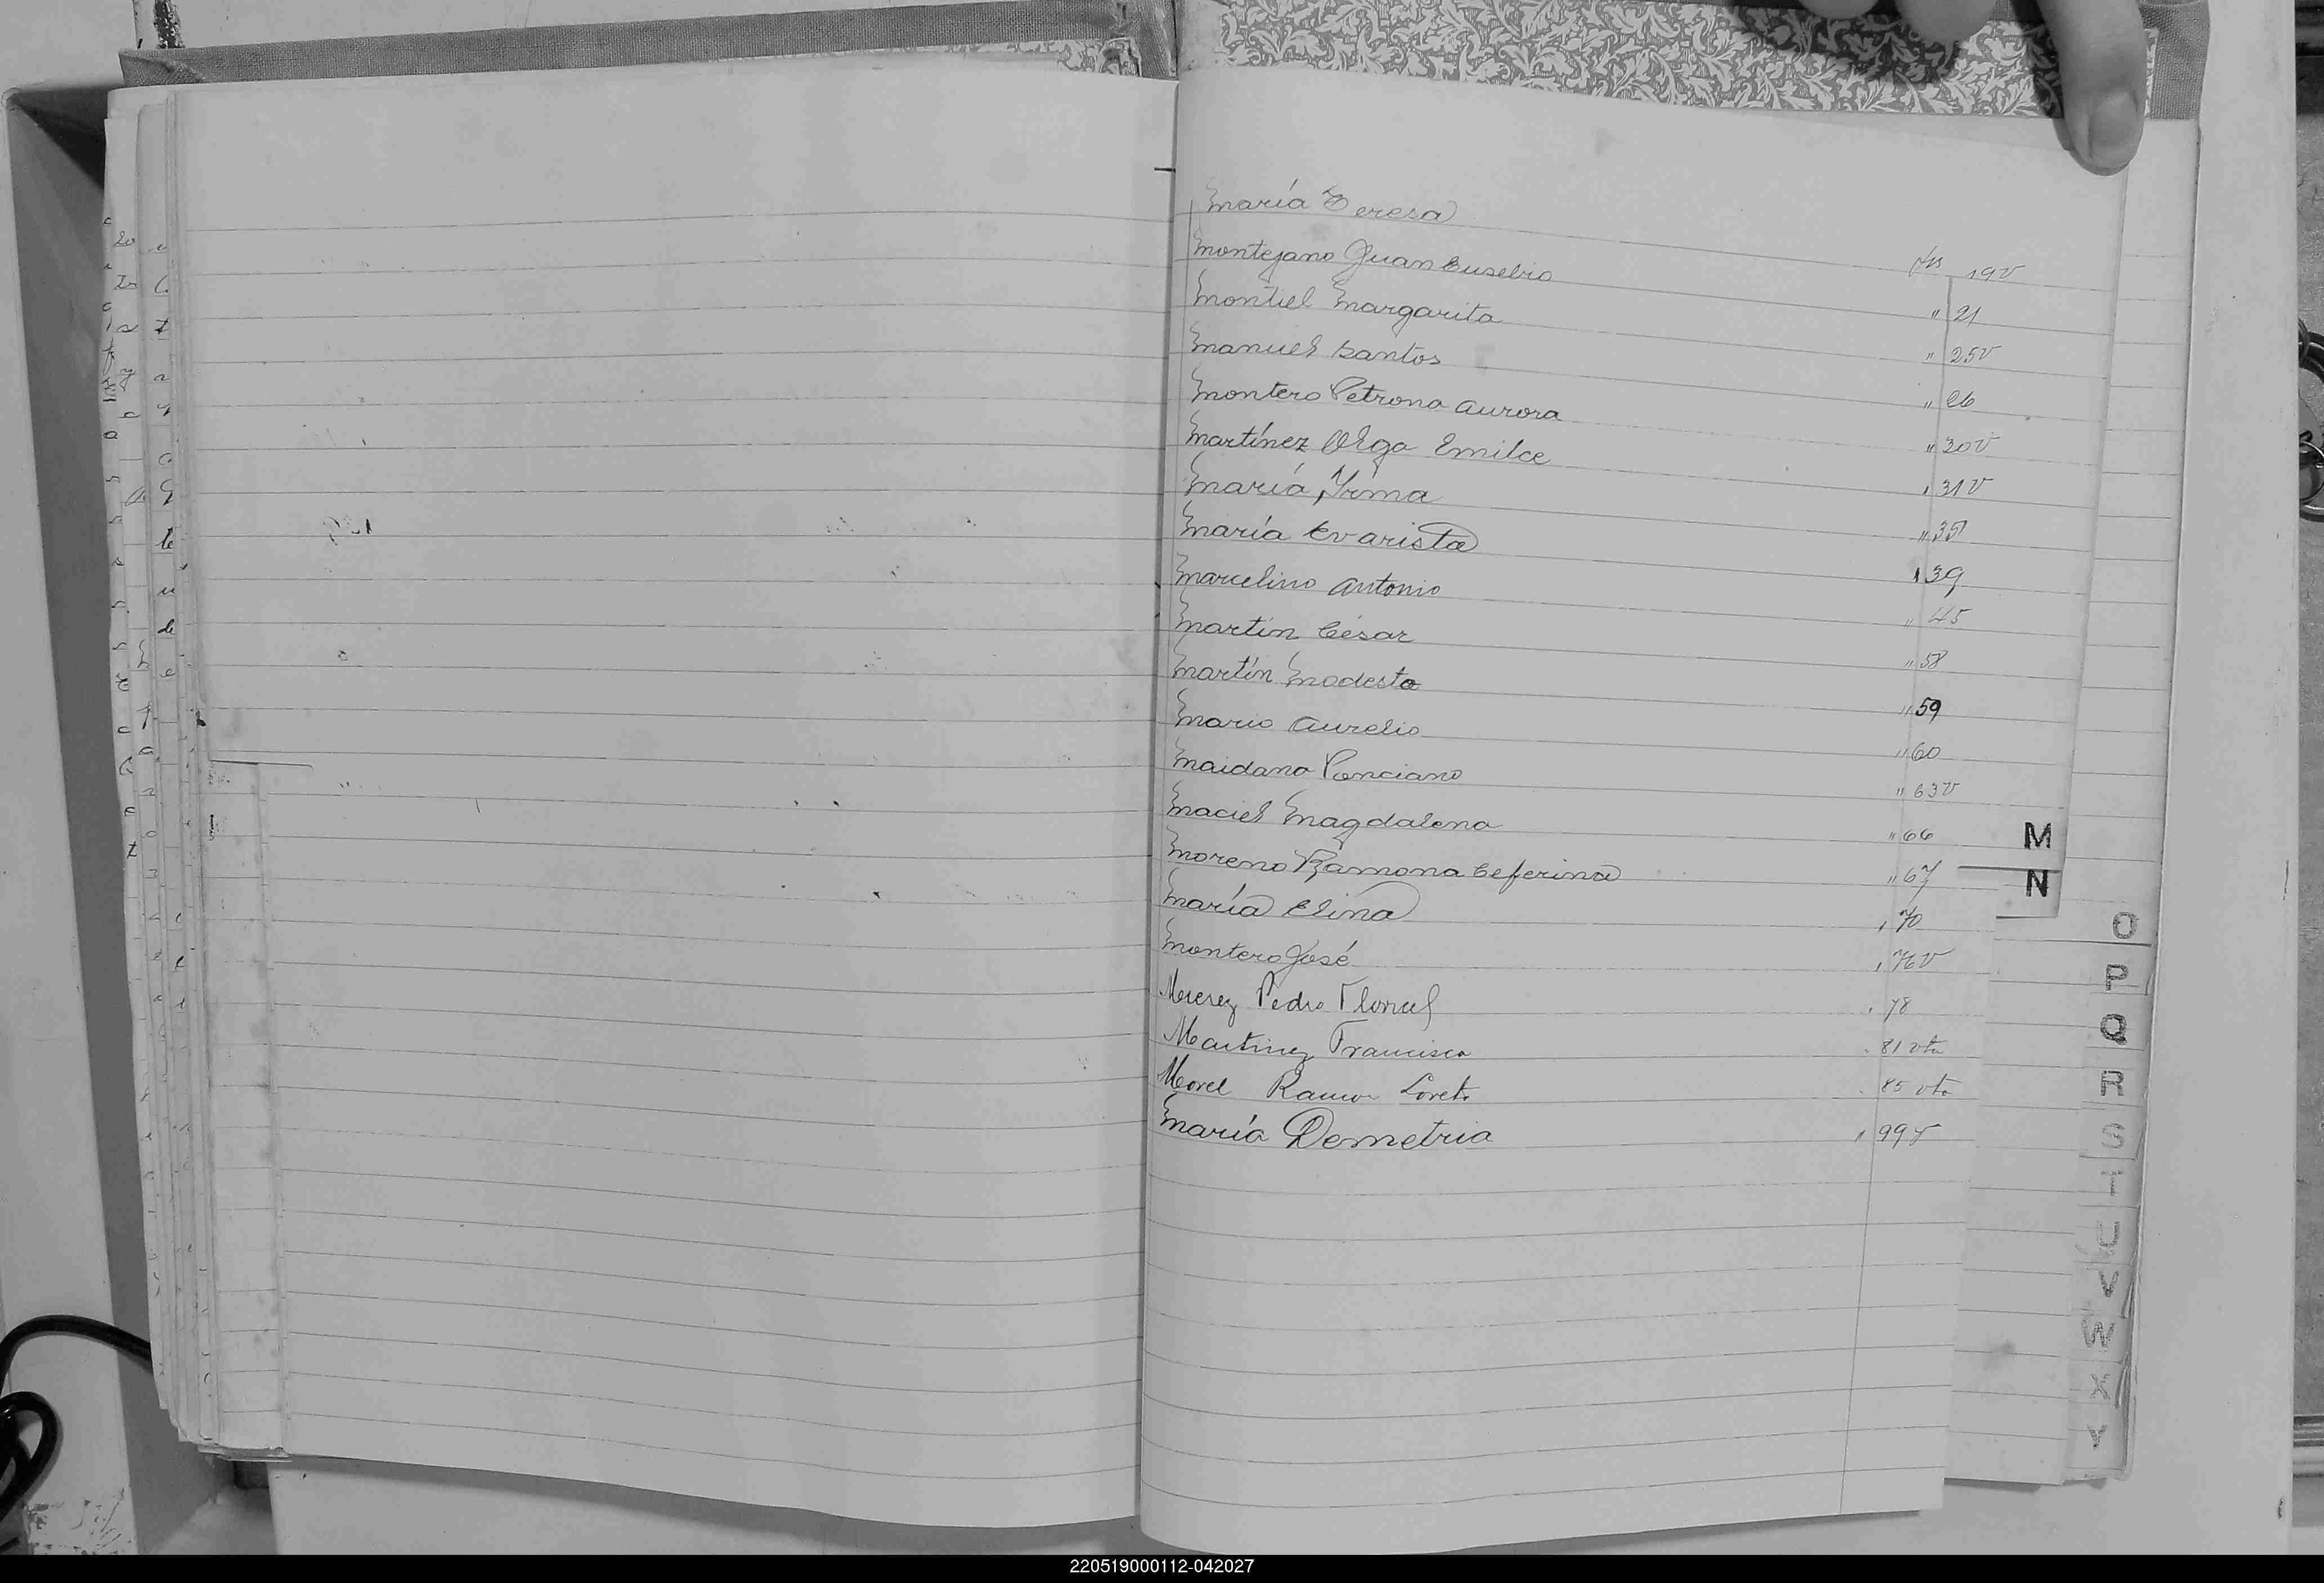 María Teresa
Montejano Juan Eusebio fls 19v
Montiel Margarita " 21
Manuel Santos " 25v
Montero Petrona Aurora " 26
Martínez Olga Emilce " 30v
María Irma " 31v
María Evarista " 35
Marcelino Antonio " 39
Martín César " 45
Martín Modesto " 58
Mario Aurelio " 59
Maidana Ponciano " 60
Maciel Magdalena " 63v
Moreno Ramona Ceferina " 66
María Elina " 67
Montero José " 70
Pedro " 76v
Martinez Francisca " 78
Morel Ramon Loreto " 81 vta
María Demetria " 85 vta
" 99v
M
N
O
P
Q
R
S
T
U
V
W
X
Y
220519000112-042027